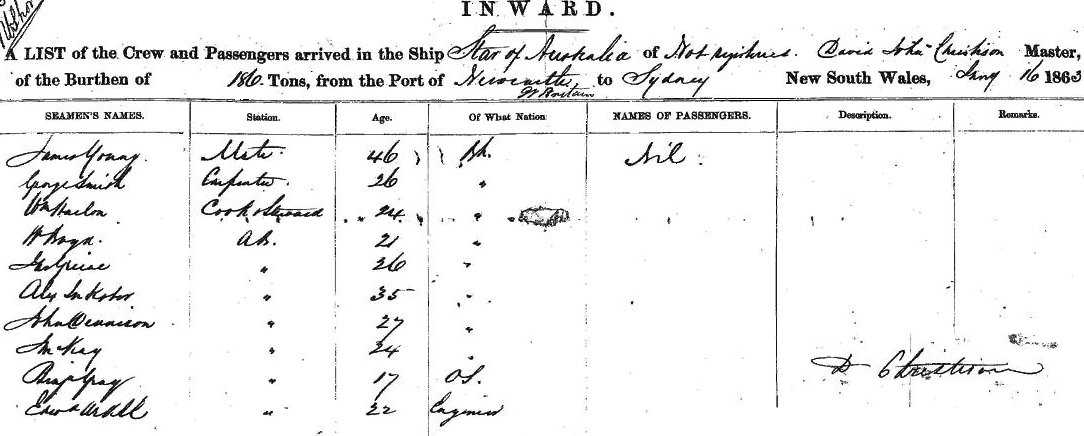 INWARD.
A LIST of the Crew and Passengers arrived in the Ship Star of Australia of Not registered. David John Christison Master,
of the Burthen of 180 Tons, from the Port of Newcastle to Sydney New South Wales, Jany 16 1863
Gt Britain
SEAMEN'S NAMES. Station. Age. Of What Nation NAMES OF PASSENGERS. Description. Remarks.
James Young. Mate. 46 Bh. Nil.
George Smith Carpenter. 26 "
Wm Cook & Steward 24 "
W Boyd. AB. 21 "
" 26 "
Alex " 35 "
John Dennison " 27 "
McKay " 24
Benj Gray " 17 OS.
Edwd " 22 Engineer
D Christison